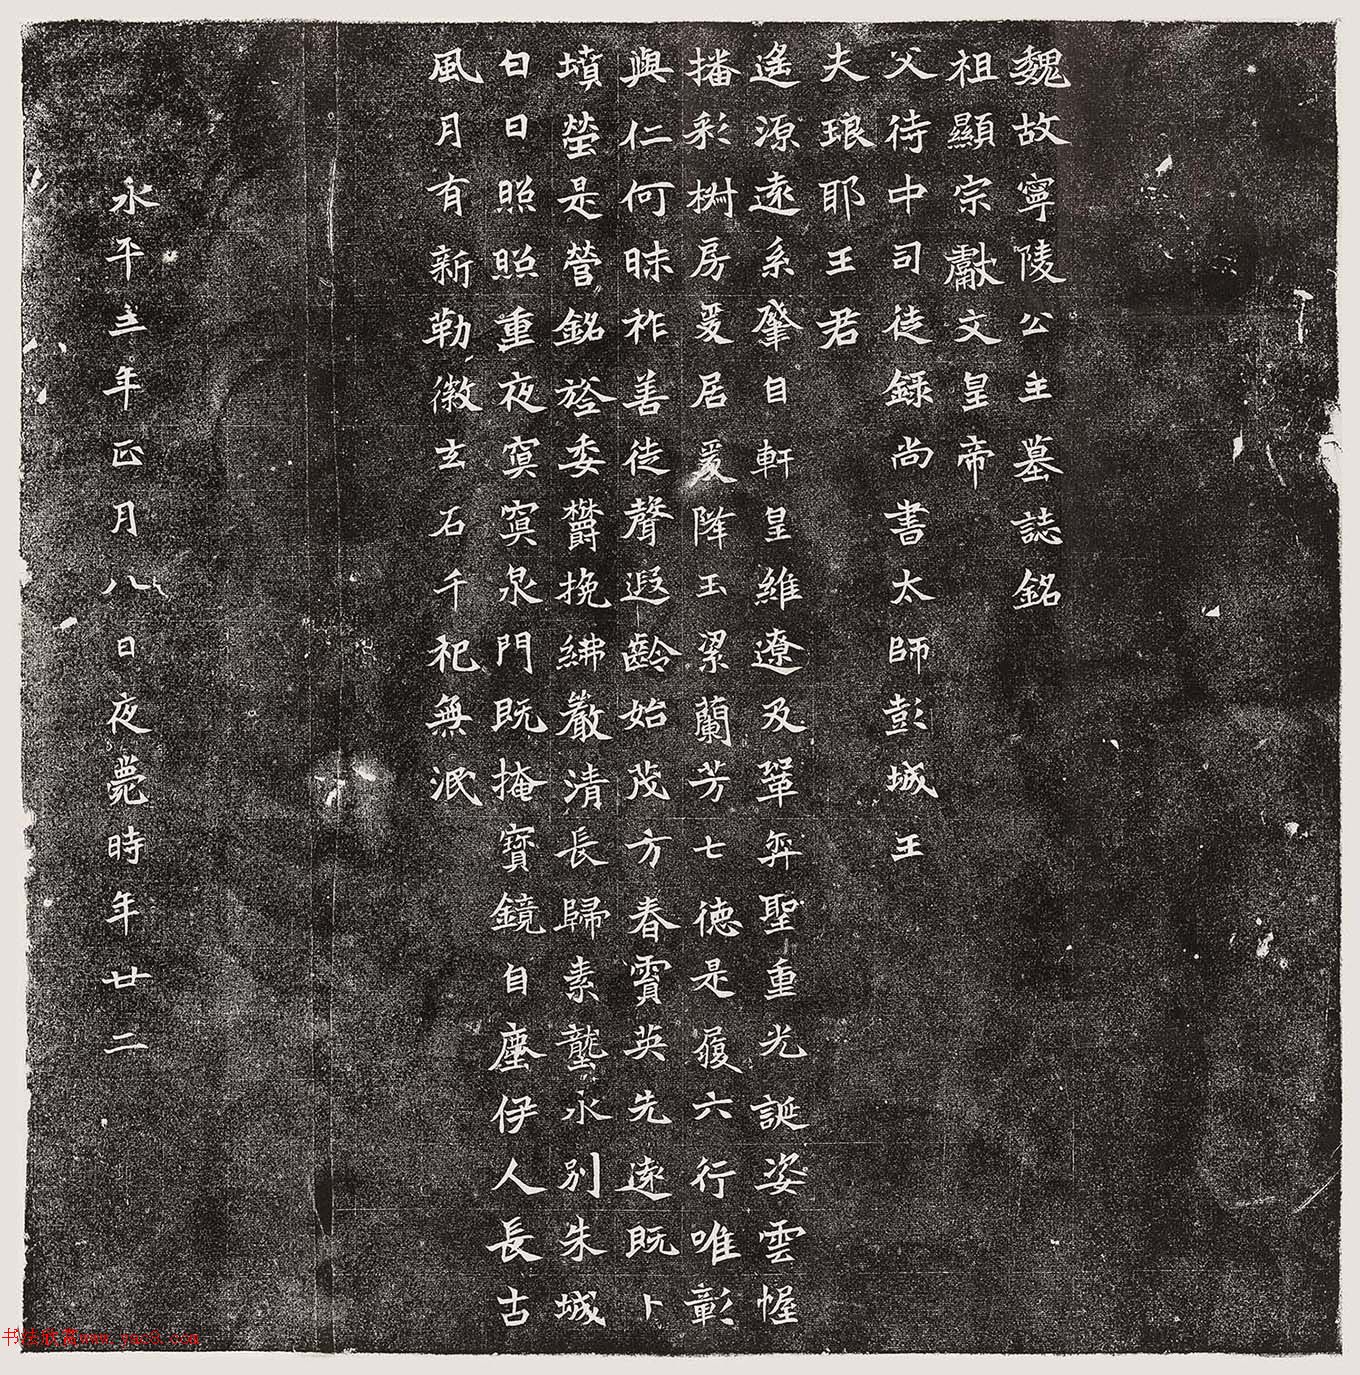 魏故寧陵公主墓誌銘
祖顯宗獻文皇帝
父侍中司徒錄尚書太師彭城王
夫琅耶王君
遙源遠系肇自軒皇維遼及鞏弈聖重光誕姿雲幄
播彩椒房爰居爰降玉潔蘭芳七德是履六行唯彰
與仁何昧祚善徒聲遐齡始茂方春霣英先遠既卜
墳塋是營銘旌委欝挽紼嚴清長歸素壟永別朱城
白日照照重夜寞寞泉門既掩寶鏡自塵伊人長古
風月有新勒徽玄石千祀無泯
永平三年正月八日夜薨時年廿二
书法欣赏www.yac8.com